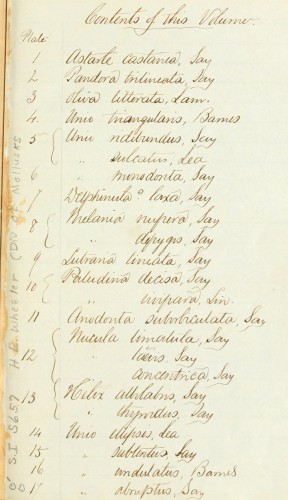 Contents of this Volume.
Plate
1 Astarte castanea, Say
2 Pandora trilineata, Say
3 Oliva litterata, Lam.
4 Unio triangularis, Barnes
5 Unio ridibundus, Say
" sulcatus, Lea
6 " monodonta, Say
7 Delphinula? laxa, Say
8 Melania nupera, Say
" Say
9 lineata, Say
10 Paludina decisa, Say
" vivipara, Lin.
11 Anodonta suborbiculata, Say
12 Nucula limatula, Say
" laevis, Say
concentrica, Say
13 Helix Say
" thyroidus, Say
14 Unio ellipsis, Lea
15 " subtentus, Say
16 " undulatus, Barnes
" abruptus, Say
S.I. 5657 H.E. Wheeler (Div. of Mollusks